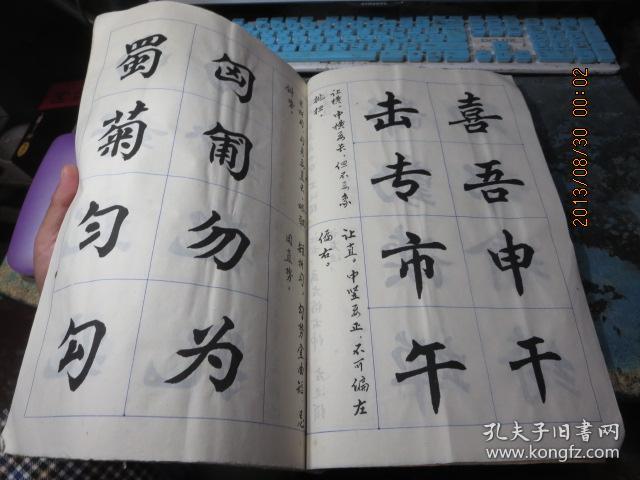 喜吾申干
击专市午
让横，中横要长，但不要象
挑担。
让直，中竖要正，不可偏左
偏右。
匈匍勿为
蜀菊匀勾
2013/08/30 00:02
孔夫子旧书网
www.kongfz.com